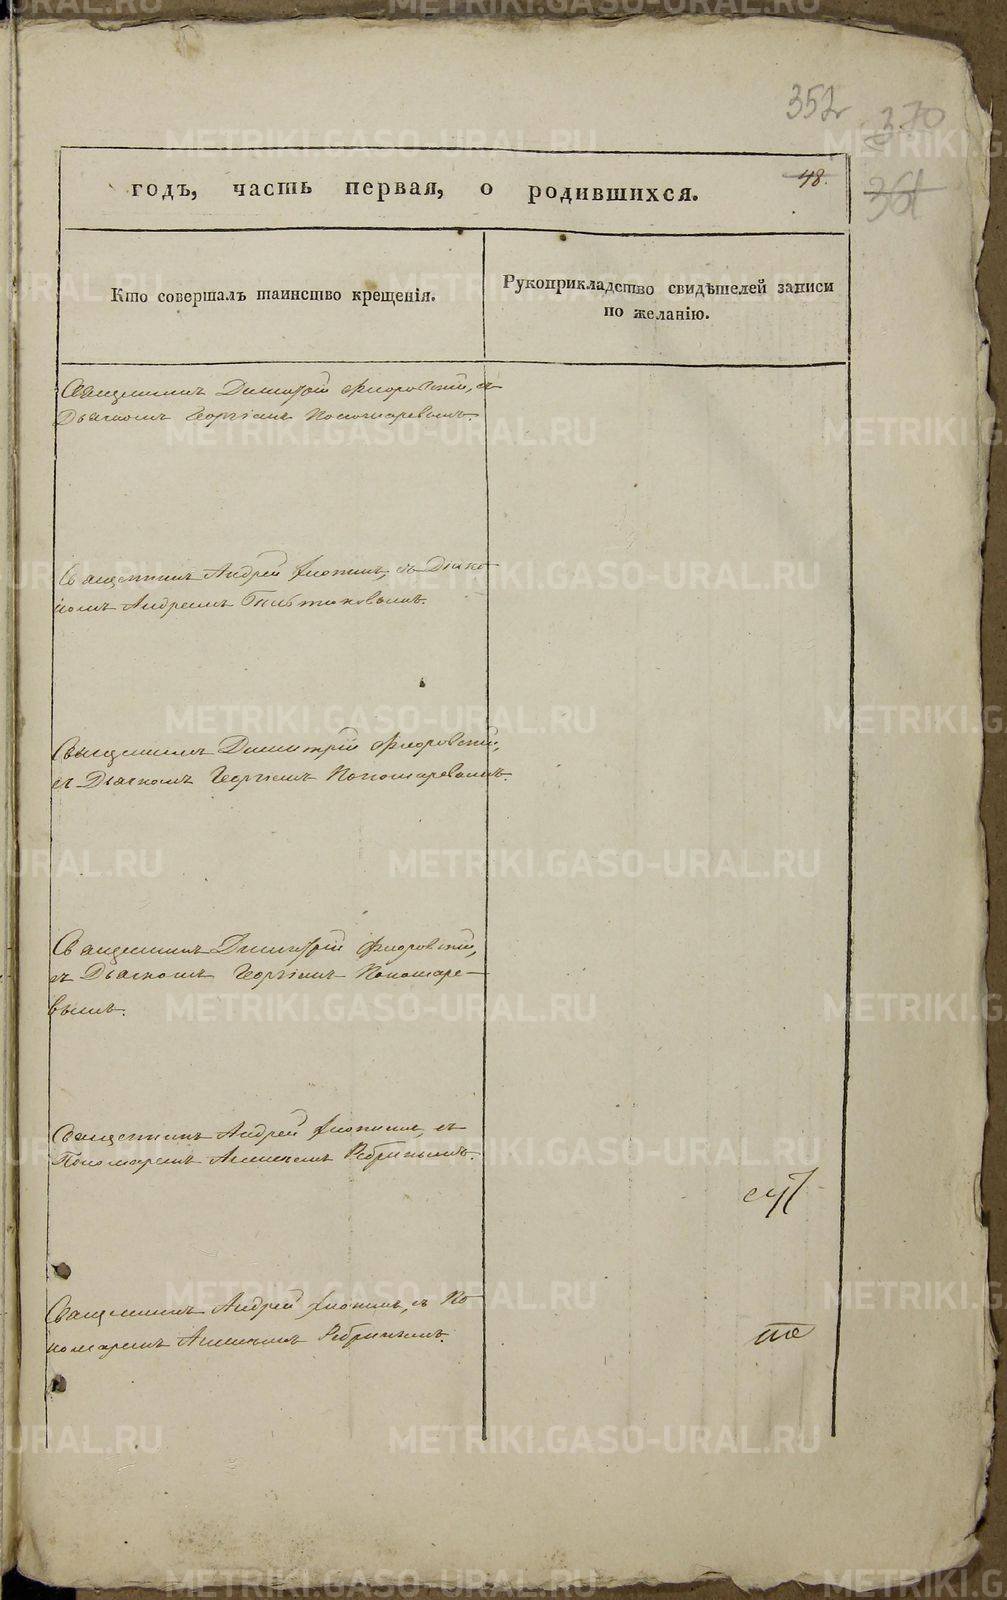 352
370
361
48.
годъ, часть первая, о родившихся.
Кто совершалъ таинство крещенія.
Рукоприкладство свидѣтелей записи
по желанію.
Священникъ Димитрій Флоровскій, съ
Дьячкомъ Георгіемъ Пономаревымъ.
Священникъ Андрей съ Діако
номъ Андреемъ
Священникъ Димитрій Флоровскій,
съ Дьячкомъ Георгіемъ Пономаревымъ.
Священникъ Димитрій Флоровскій,
съ Дьячкомъ Георгіемъ Пономаре-
вымъ.
Священникъ Андрей съ
Пономаремъ Ребринымъ.
Священникъ Андрей съ По
номаремъ Ребринымъ.
METRIKI.GASO-URAL.RU